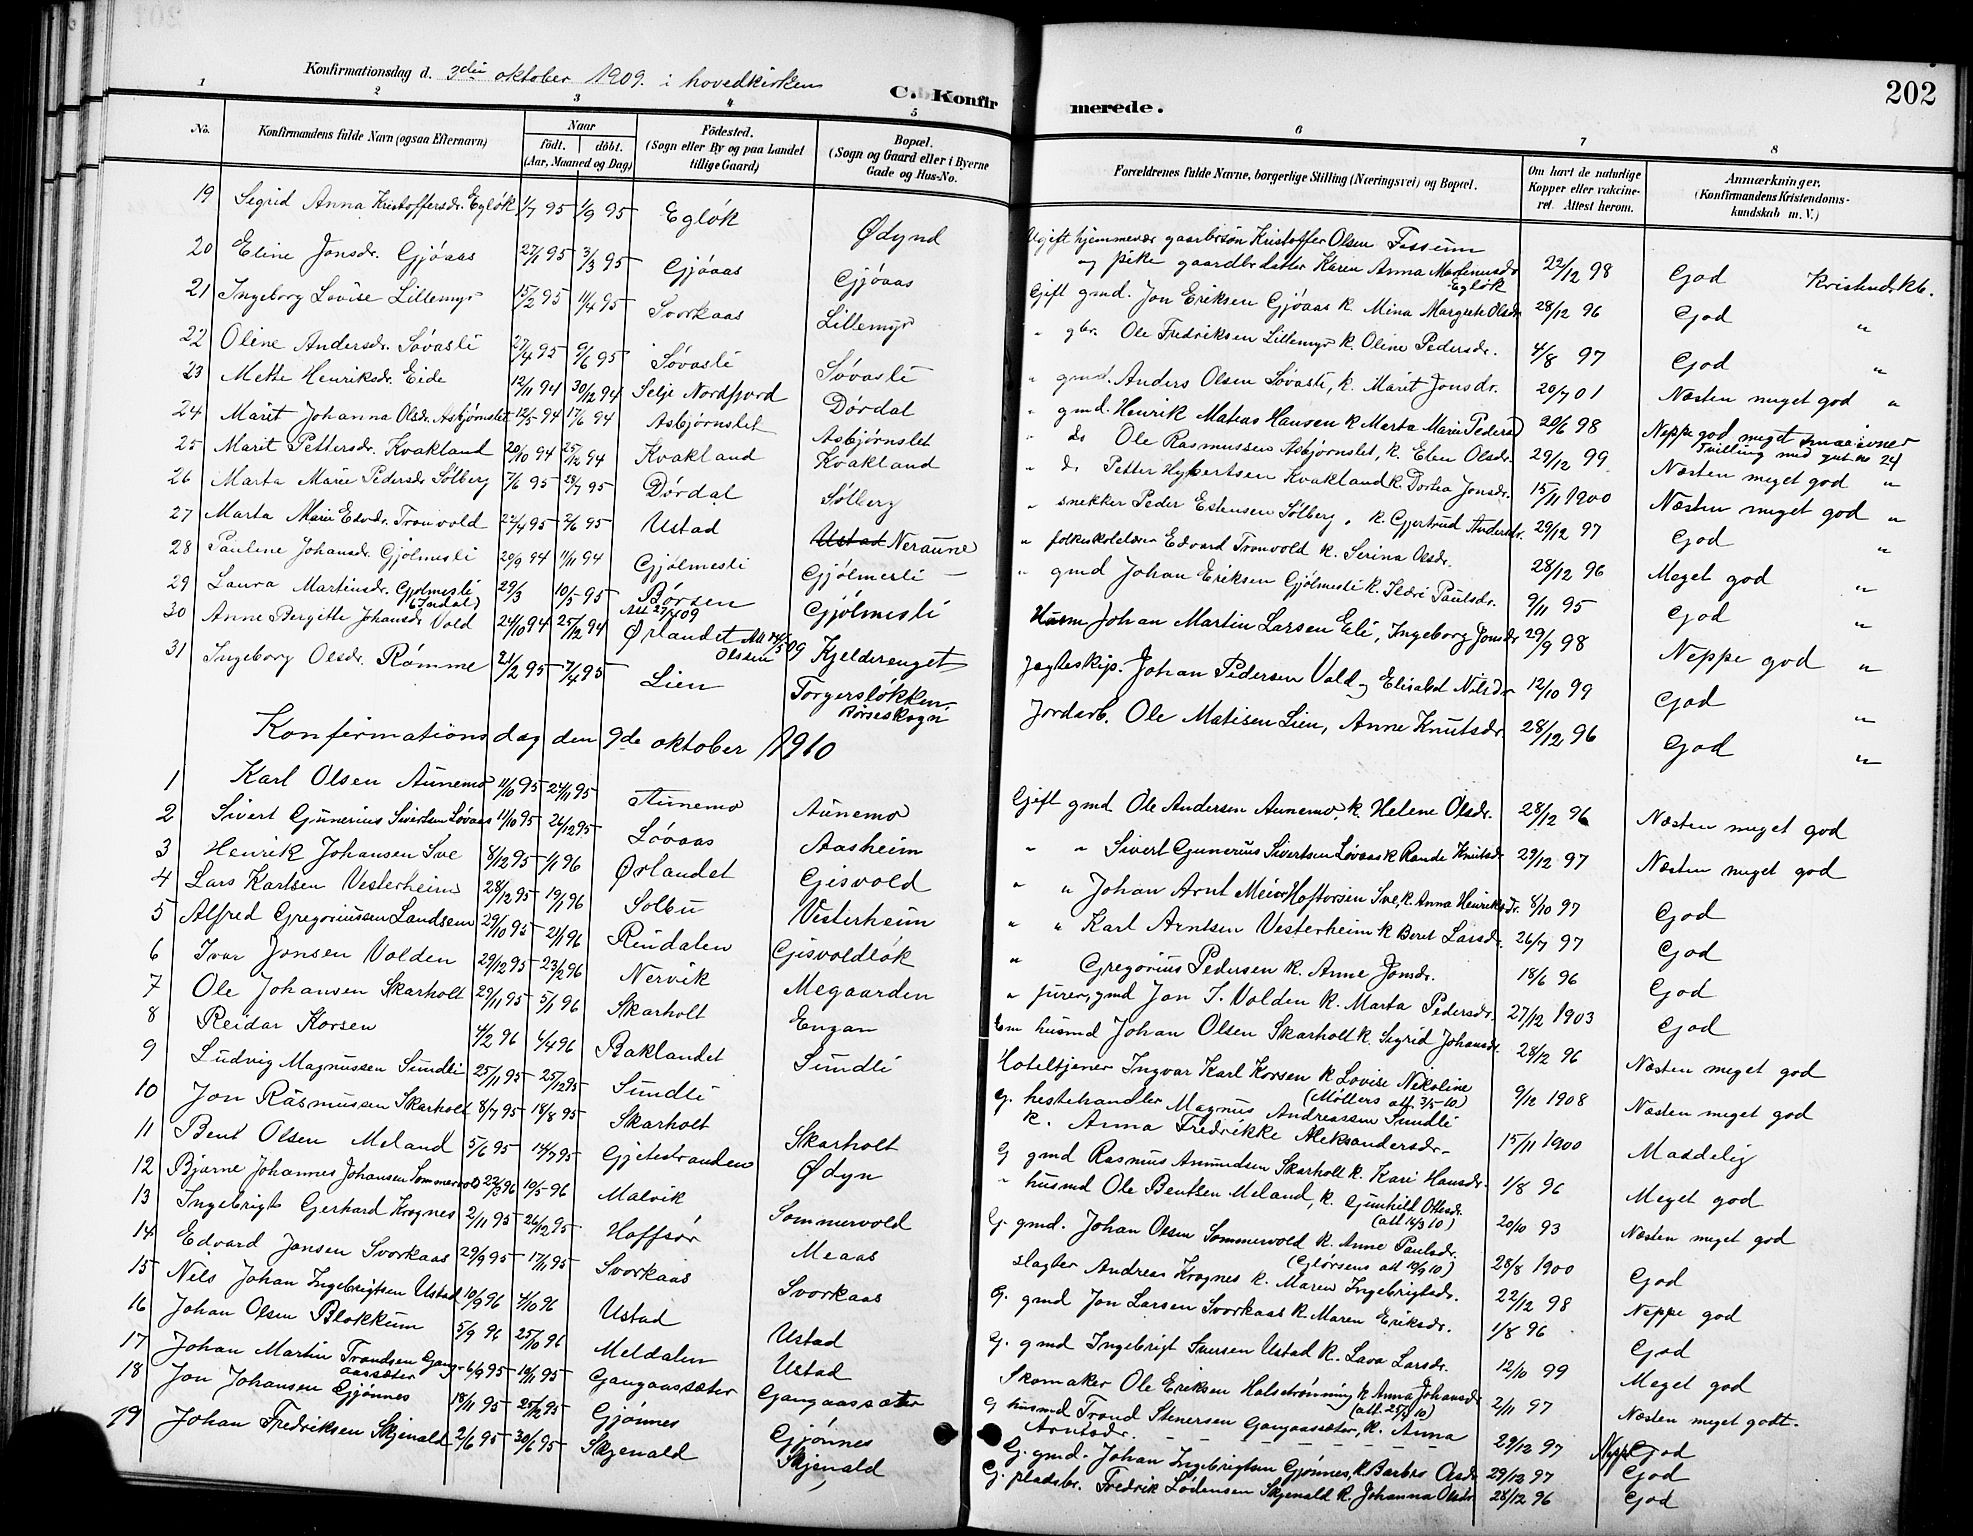 202
Konfirmationsdag d. 3die oktober 1909. i hovedkirken
C. Konfirmerede.
1 2 3 4 5 6 7 8
No. Konfirmandens fulde Navn (ogsaa Efternavn) Naar födt. döbt. (Aar, Maaned og Dag) Födested. (Sogn eller By og paa Landet tillige Gaard) Bopæl. (Sogn og Gaard eller i Byerne Gade og Hus-No.
Forældrenes fulde Navne, borgerlige Stilling (Næringsvei) og Bopæl. Om havt de naturlige Kopper eller vakcineret. Attest herom. Anmærkninger. (Konfirmandens Kristendomskundskab m. V.)
19 Sigrid Anna Kristoffersdr. Egløk 1/7 95 1/9 95 Egløk Ødynd Ugift hjemmevær gaarbrsøn Kristoffer Olsen Fossum og pike gaardbrdatter Karen Anna Martinusdr Egløk 22/12 98 God Kristend.kb.
20 Eline Jonsdr. Gjøaas 27/1 95 3/3 95 Gjøaas Gjøaas Gift gmd. Jon Eriksen Gjøaas k. Mina Margrete Olsdr 28/12 96 God "
21 Ingeborg Lovise Lillemyr 15/2 95 11/4 95 Svorkaas Lillemyr " gbr. Ole Fredriksen Lillemyr k. Oline Pedersdr. 4/8 97 God "
22 Oline Andersdr. Søvasli 27/4 95 9/6 95 Søvasli Søvasli " gmd. Anders Olsen Søvasli, k. Marit Jonsdr. 20/7 01 Næsten meget god "
23 Mette Henriksdr. Eide 12/11 94 30/12 94 Selje Nordfjord Dørdal " gmd. Henrik Matias Hansen k Marta Marie Pedersd 20/6 98 Neppe god meget smaa evner
24 Marit Johanna Olsdr. Asbjørnslet 12/5 94 17/6 94 Asbjørnslet Asbjørnslet " do Ole Rasmussen Asbjørnslet, k. Elen Olsdr. 29/12 99 Tvilling med gut no 24 Næsten meget god "
25 Marit Pettersdr. Kvakland 20/10 94 25/12 94 Kvakland Kvakland " do Petter Hybertsen Kvakland k. Dortea Jonsdr. 15/11 1900 Næsten meget god "
26 Marta Marie Pedersdr Sølberg 7/6 95 28/7 95 Dørdal Sølberg " snekker Peder Estensen Sølberg, k. Gjertrud Andersdr. 29/12 97 God "
27 Marta Marie Edvdr. Tronvold 22/4 95 2/6 95 Ustad Ustad Neraune " folkeskolelærer Edvard Tronvold k. Serina Olsdr. 28/12 96 Meget god "
28 Pauline Johansdr. Gjølmesli 20/9 94 11/11 94 Gjølmesli Gjølmesli " gmd Johan Eriksen Gjølmesli k. Ildri Paulsdr. 9/11 95 God "
29 Laura Martinsdr. Gjølmesli 29/3 10/5 95 Børsen Att 27/9 09 Gjølmesli Husm Johan Martin Larsen Eli, Ingeborg Jonsdr 29/9 98 Neppe god "
30 Anne Bergitte Johansdr Vold 24/10 94 25/12 94 Ørlandet Kjelderenget Jagteskip. Johan Pedersen Vold, Elisabet Nilsdr 12/10 99 God "
31 Ingeborg Olsdr. Rømme 21/2 95 7/4 95 Lien Torgersløkken, Børseskogn Jordarb. Ole Matisen Lien, Anne Knutsdr 28/12 96 God "
Konfirmationsdag den 9de oktober 1910
1 Karl Olsen Aunemo 11/10 95 24/11 95 Aunemo Aunemo Gift gmd Ole Andersen Aunemo, k. Helene Olsdr. 28/12 96 Næsten meget god
2 Sivert Gunerius Sivertsen Løvaas 11/10 95 26/12 95 Løvaas Aasheim " " Sivert Gunerius Sivertsen Løvaas k Rande Knutsdr 29/12 97 Næsten meget god
3 Henrik Johansen Sve 8/12 95 1/1 96 Ørlandet Gisvold " " Johan Arnt Meier Hoftorsen Sve, k. Anna Henriksdr. 8/10 97 God
4 Lars Karlsen Vesterheim 28/12 95 19/1 96 Solbu Vesterheim " " Karl Arntsen Vesterheim k Beret Larsdr. 26/7 97 God
5 Alfred Gregoriussen Landsem 29/10 95 2/1 96 Rindalen Gisvoldløk " Gregorius Pedersen k. Anne Jonsdr. 18/6 96 God
6 Ivar Jonsen Volden 29/12 95 23/2 96 Nervik Megaarden " furer, gmd Jon I. Volden k. Marta Pedersdr. 27/12 1903 God
7 Ole Johansen Skarholt 29/11 95 5/1 96 Skarholt Engan Em husmd Johan Olsen Skarholt k Sigrid Johansdr. 28/12 96 Næsten meget god
8 Reidar Korsen 4/2 96 6/4 96 Baklandet Sundli Hoteltjener Ingvar Karl Korsen k Lovise Nikoline (Møllers att. 3/5-10) 9/12 1908 Næsten meget god
9 Ludvig Magnussen Sundli 25/11 95 25/12 95 Sundli g. hestehandler Magnus Andreassen Sundli k. Anna Fredrikke Aleksandersdr. 15/11 1900 Maadelig
10 Jon Rasmussen Skarholt 8/7 95 18/8 95 Skarholt Skarholt G gmd Rasmus Amundsen Skarholt k. Kari Hansdr. 1/8 96 Meget god
11 Bent Olsen Meland 5/6 95 14/7 95 Gjetestranden Ødyn " husmd Ole Bentsen Meland, k. Gunhild Ottesdr. (att 16/3 10) 20/10 93 Næsten meget god
12 Bjarne Johannes Johansen Sommervold 22/2 96 10/5 96 Malvik Sommervold G. gmd. Johan Olsen Sommervold k. Anne Paulsdr. 28/8 1900 God
13 Ingebrigt Gerhard Krognes 2/11 95 26/12 95 Hoffsør Meaas slagter Andreas Krognes k. Maren Ingebrigtsdr. 22/12 98 Neppe god
14 Edvard Jonsen Svorkaas 29/9 95 17/11 95 Svorkaas Svorkaas G. gmd Jon Larsen Svorkaas k. Maren Eriksdr. 1/8 96 God
15 Nils Johan Ingebrigtsen Ustad 10/9 96 4/10 96 Ustad Ustad G. gmd Ingebrigt Ustad k. Lava Larsdr. 12/10 99 Meget god
16 Johan Olsen Blokkum 5/9 96 25/10 96 Meldalen Ustad Skomaker Ole Eriksen Halsetrønning k Anna Johansdr 2/11 97 Næsten meget godt.
17 Johan Martin Trondsen Gangaassæter 6/9 95 10/11 95 Gangaassæter Gangaassæter G husmd Trond Stenersen Gangaassæter, k. Anna Arntsdr. 29/12 97 Neppe God
18 Jon Johansen Gjønnes 18/11 95 25/12 95 Gjønnes Gjønnes G. gmd. Johan Ingebrigtsen Gjønnes, k. Barbro Olsdr 29/12 97 God
19 Johan Fredriksen Skjenald 2/6 95 30/6 95 Skjenald Skjenald G. pladsbr. Fredrik Lødensen Skjenald k. Johanna Olsdr 28/12 96 God